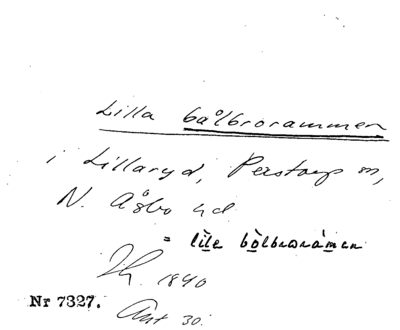 Lilla bålbrorammen
i Lillaryd, Perstorp sn,
N. Åsbo hd
= lìle bòlbroràmen
1840
Nr 7327.
Ant 30.